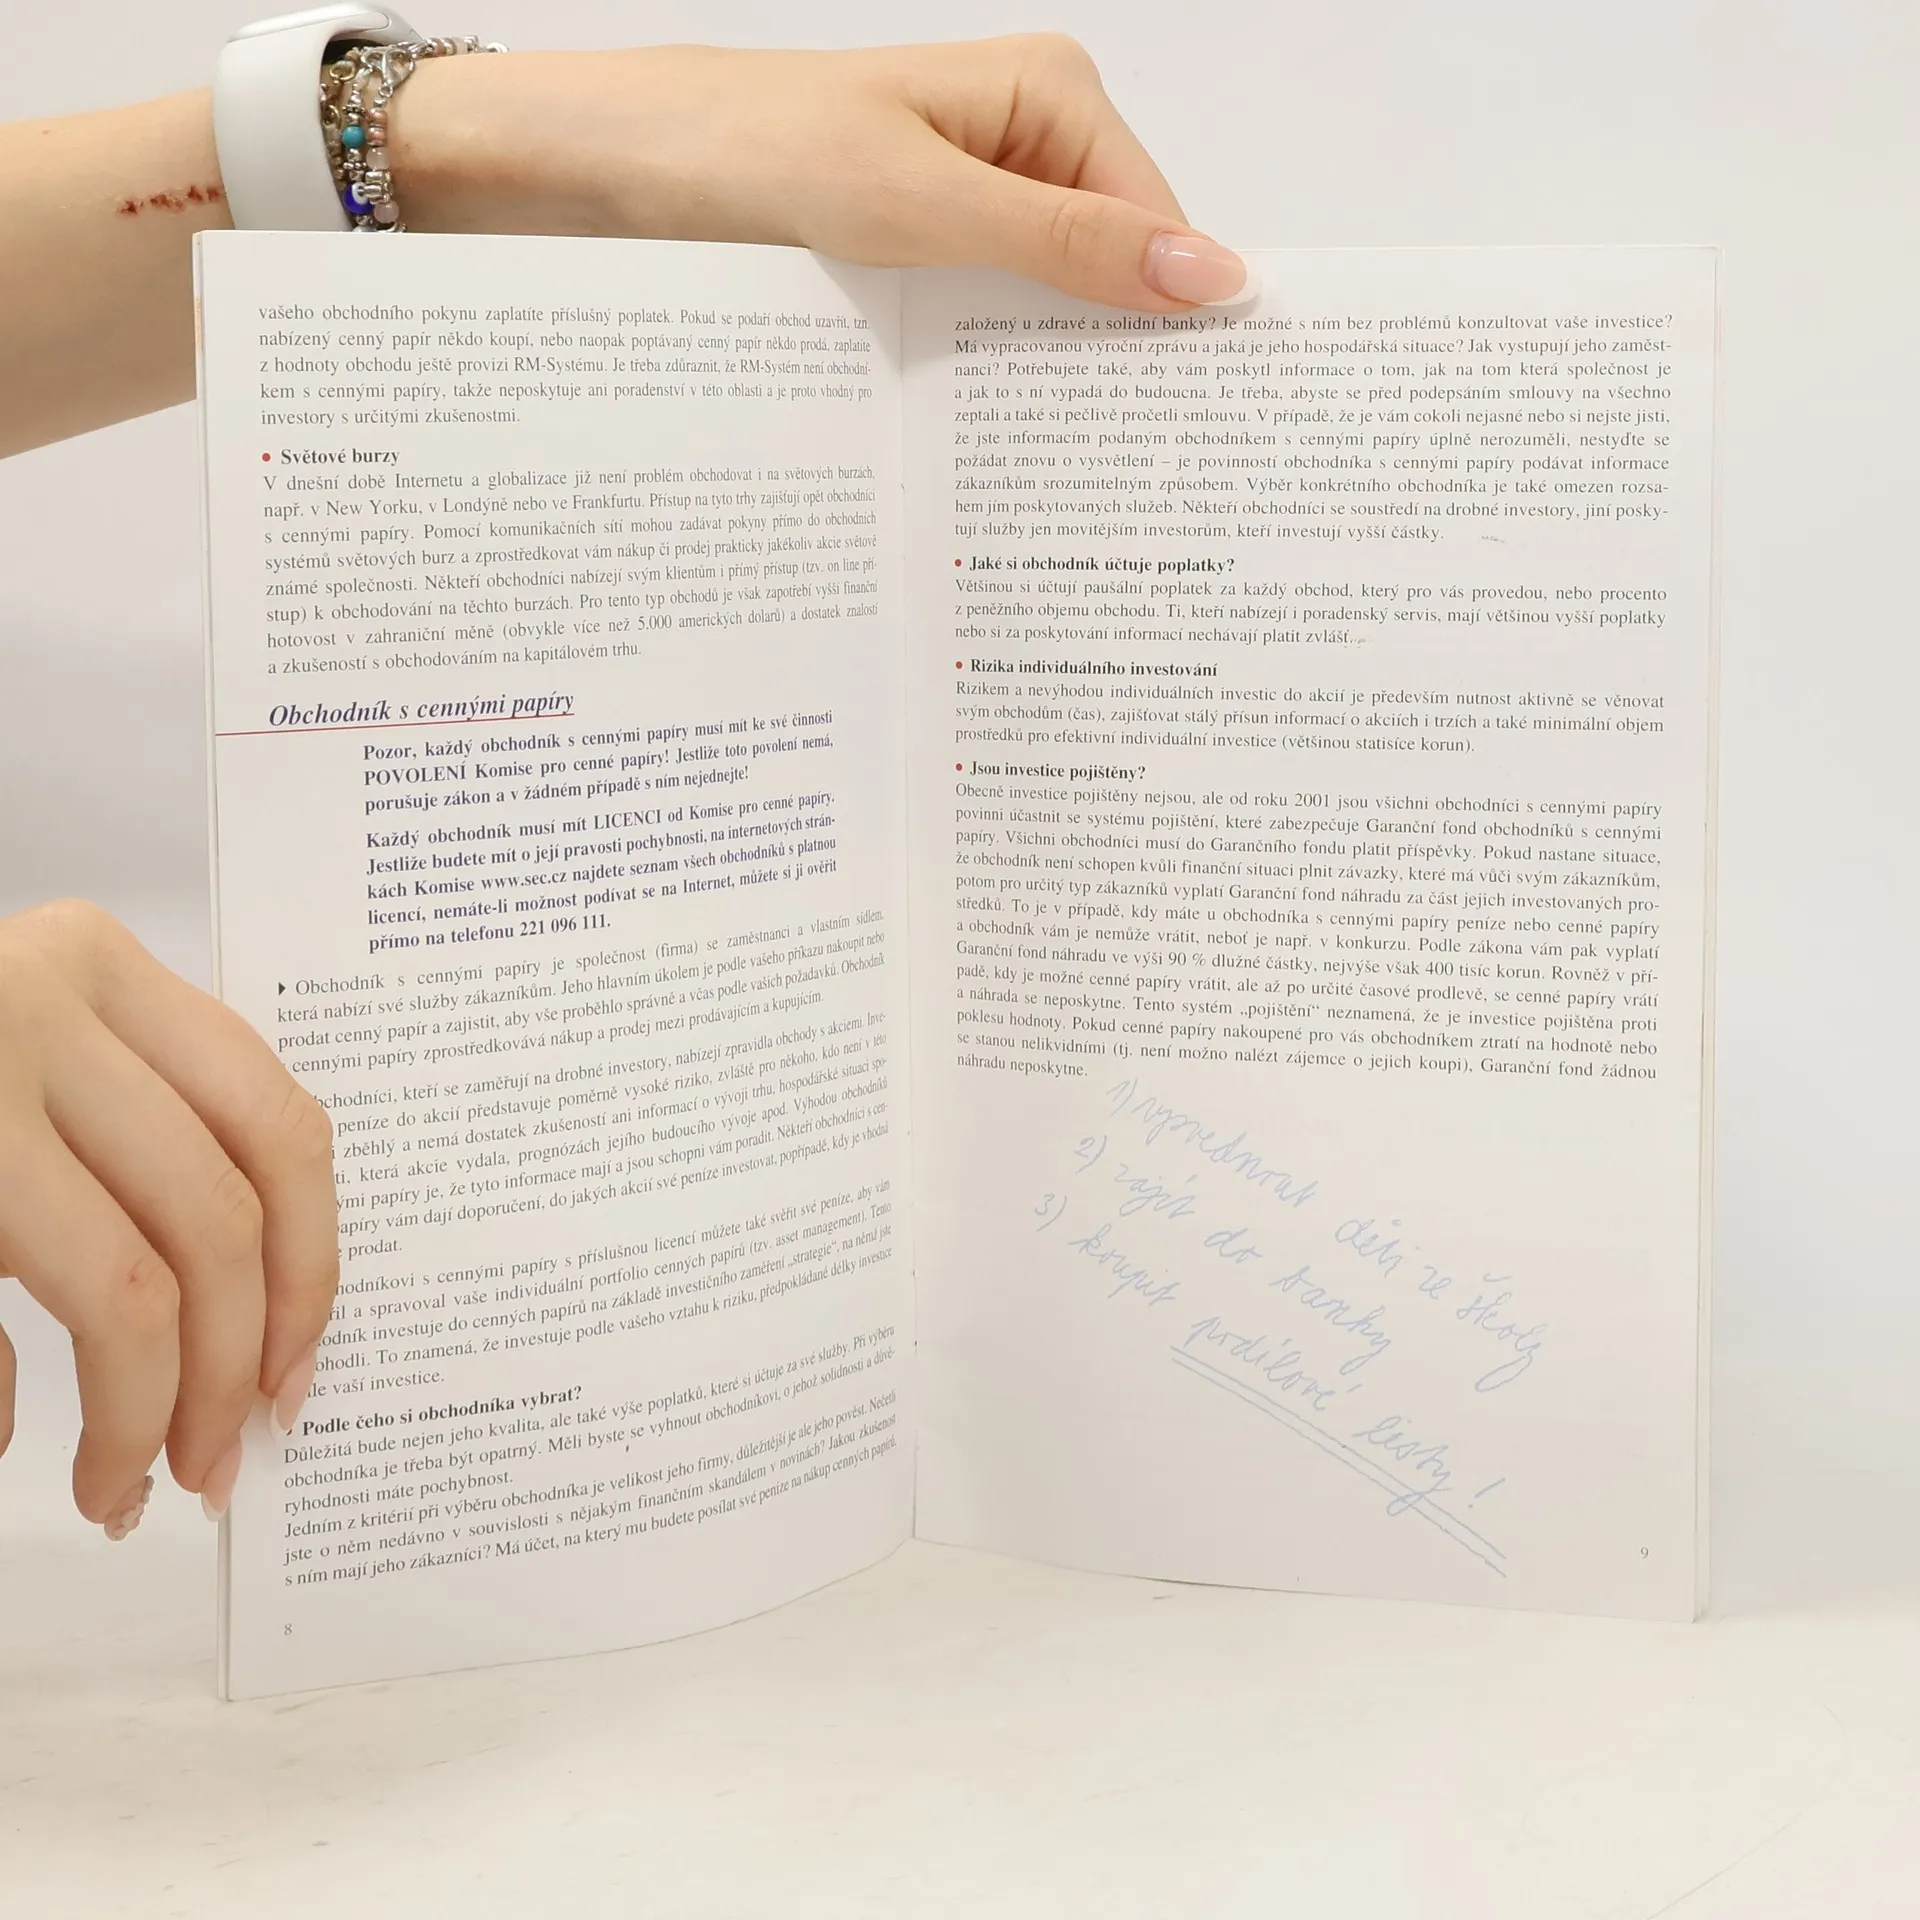 vašeho obchodního pokynu zaplatíte příslušný poplatek. Pokud se podaří obchod uzavřít, tzn.
nabízený cenný papír někdo koupí, nebo naopak poptávaný cenný papír někdo prodá, zaplatíte
z hodnoty obchodu ještě provizi RM-Systému. Je třeba zdůraznit, že RM-Systém není obchodní-
kem s cennými papíry, takže neposkytuje ani poradenství v této oblasti a je proto vhodný pro
investory s určitými zkušenostmi.
• Světové burzy
V dnešní době Internetu a globalizace již není problém obchodovat i na světových burzách,
např. v New Yorku, v Londýně nebo ve Frankfurtu. Přístup na tyto trhy zajišťují opět obchodníci
s cennými papíry. Pomocí komunikačních sítí mohou zadávat pokyny přímo do obchodních
systémů světových burz a zprostředkovat vám nákup či prodej prakticky jakékoliv akcie světově
známé společnosti. Někteří obchodníci nabízejí svým klientům i přímý přístup (tzv. on line pří-
stup) k obchodování na těchto burzách. Pro tento typ obchodů je však zapotřebí vyšší finanční
hotovost v zahraniční měně (obvykle více než 5.000 amerických dolarů) a dostatek znalostí
a zkušeností s obchodováním na kapitálovém trhu.
Obchodník s cennými papíry
Pozor, každý obchodník s cennými papíry musí mít ke své činnosti
POVOLENÍ Komise pro cenné papíry! Jestliže toto povolení nemá,
porušuje zákon a v žádném případě s ním nejednejte!
Každý obchodník musí mít LICENCI od Komise pro cenné papíry.
Jestliže budete mít o její pravosti pochybnosti, na internetových strán-
kách Komise www.sec.cz najdete seznam všech obchodníků s platnou
licencí, nemáte-li možnost podívat se na Internet, můžete si ji ověřit
přímo na telefonu 221 096 111.
Obchodník s cennými papíry je společnost (firma) se zaměstnanci a vlastním sídlem,
která nabízí své služby zákazníkům. Jeho hlavním úkolem je podle vašeho příkazu nakoupit nebo
prodat cenný papír a zajistit, aby vše proběhlo správně a včas podle vašich požadavků. Obchodník
cennými papíry zprostředkovává nákup a prodej mezi prodávajícím a kupujícím.
bchodníci, kteří se zaměřují na drobné investory, nabízejí zpravidla obchody s akciemi. Inve-
peníze do akcií představuje poměrně vysoké riziko, zvláště pro někoho, kdo není v této
i zběhlý a nemá dostatek zkušeností ani informací o vývoji trhu, hospodářské situaci spo-
ti, která akcie vydala, prognózách jejího budoucího vývoje apod. Výhodou obchodníků
ými papíry je, že tyto informace mají a jsou schopni vám poradit. Někteří obchodníci s cen-
apíry vám dají doporučení, do jakých akcií své peníze investovat, popřípadě, kdy je vhodné
e prodat.
hodníkovi s cennými papíry s příslušnou licencí můžete také svěřit své peníze, aby vám
řil a spravoval vaše individuální portfolio cenných papírů (tzv. asset management). Tento
odník investuje do cenných papírů na základě investičního zaměření „strategie", na němž jste
ohodli. To znamená, že investuje podle vašeho vztahu k riziku, předpokládané délky investice
le vaší investice.
Podle čeho si obchodníka vybrat?
Důležitá bude nejen jeho kvalita, ale také výše poplatků, které si účtuje za své služby. Při výběru
obchodníka je třeba být opatrný. Měli byste se vyhnout obchodníkovi, o jehož solidnosti a důvě-
ryhodnosti máte pochybnost.
Jedním z kritérií při výběru obchodníka je velikost jeho firmy, důležitější je ale jeho pověst. Nečetli
jste o něm nedávno v souvislosti s nějakým finančním skandálem v novinách? Jakou zkušenost
s ním mají jeho zákazníci? Má účet, na který mu budete posílat své peníze na nákup cenných papírů,
8
založený u zdravé a solidní banky? Je možné s ním bez problémů konzultovat vaše investice?
Má vypracovanou výroční zprávu a jaká je jeho hospodářská situace? Jak vystupují jeho zaměst-
nanci? Potřebujete také, aby vám poskytl informace o tom, jak na tom která společnost je
a jak to s ní vypadá do budoucna. Je třeba, abyste se před podepsáním smlouvy na všechno
zeptali a také si pečlivě pročetli smlouvu. V případě, že je vám cokoli nejasné nebo si nejste jisti,
že jste informacím podaným obchodníkem s cennými papíry úplně nerozuměli, nestyďte se
požádat znovu o vysvětlení – je povinností obchodníka s cennými papíry podávat informace
zákazníkům srozumitelným způsobem. Výběr konkrétního obchodníka je také omezen rozsa-
hem jím poskytovaných služeb. Někteří obchodníci se soustředí na drobné investory, jiní posky-
tují služby jen movitějším investorům, kteří investují vyšší částky.
• Jaké si obchodník účtuje poplatky?
Většinou si účtují paušální poplatek za každý obchod, který pro vás provedou, nebo procento
z peněžního objemu obchodu. Ti, kteří nabízejí i poradenský servis, mají většinou vyšší poplatky
nebo si za poskytování informací nechávají platit zvlášť.
• Rizika individuálního investování
Rizikem a nevýhodou individuálních investic do akcií je především nutnost aktivně se věnovat
svým obchodům (čas), zajišťovat stálý přísun informací o akciích i trzích a také minimální objem
prostředků pro efektivní individuální investice (většinou statisíce korun).
• Jsou investice pojištěny?
Obecně investice pojištěny nejsou, ale od roku 2001 jsou všichni obchodníci s cennými papíry
povinni účastnit se systému pojištění, které zabezpečuje Garanční fond obchodníků s cennými
papíry. Všichni obchodníci musí do Garančního fondu platit příspěvky. Pokud nastane situace,
že obchodník není schopen kvůli finanční situaci plnit závazky, které má vůči svým zákazníkům,
potom pro určitý typ zákazníků vyplatí Garanční fond náhradu za část jejich investovaných pro-
středků. To je v případě, kdy máte u obchodníka s cennými papíry peníze nebo cenné papíry
a obchodník vám je nemůže vrátit, neboť je např. v konkurzu. Podle zákona vám pak vyplatí
Garanční fond náhradu ve výši 90 % dlužné částky, nejvýše však 400 tisíc korun. Rovněž v pří-
padě, kdy je možné cenné papíry vrátit, ale až po určité časové prodlevě, se cenné papíry vrátí
a náhrada se neposkytne. Tento systém „pojištění" neznamená, že je investice pojištěna proti
poklesu hodnoty. Pokud cenné papíry nakoupené pro vás obchodníkem ztratí na hodnotě nebo
se stanou nelikvidními (tj. není možno nalézt zájemce o jejich koupi), Garanční fond žádnou
náhradu neposkytne.
1) vyzvednout děti ze školy
2) zajít do banky
3) koupit podílové listy!
9